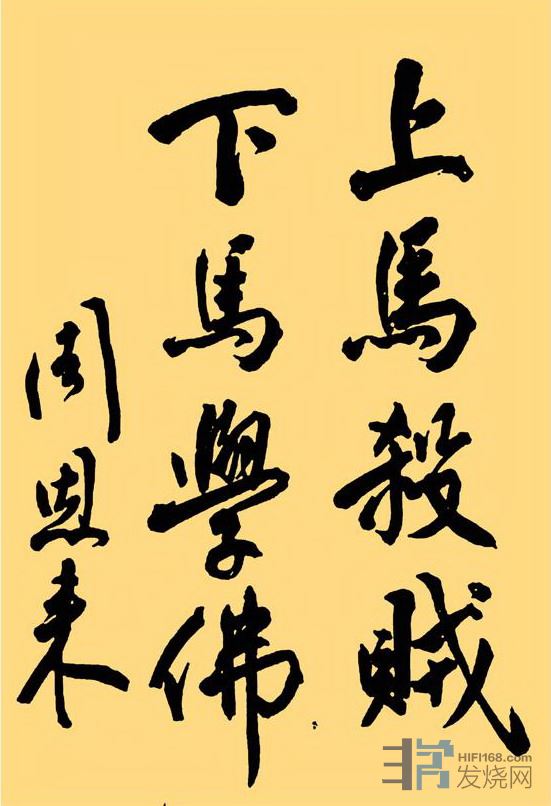 上馬殺賊
下馬學佛
周恩来
HIFI168.com
发烧网